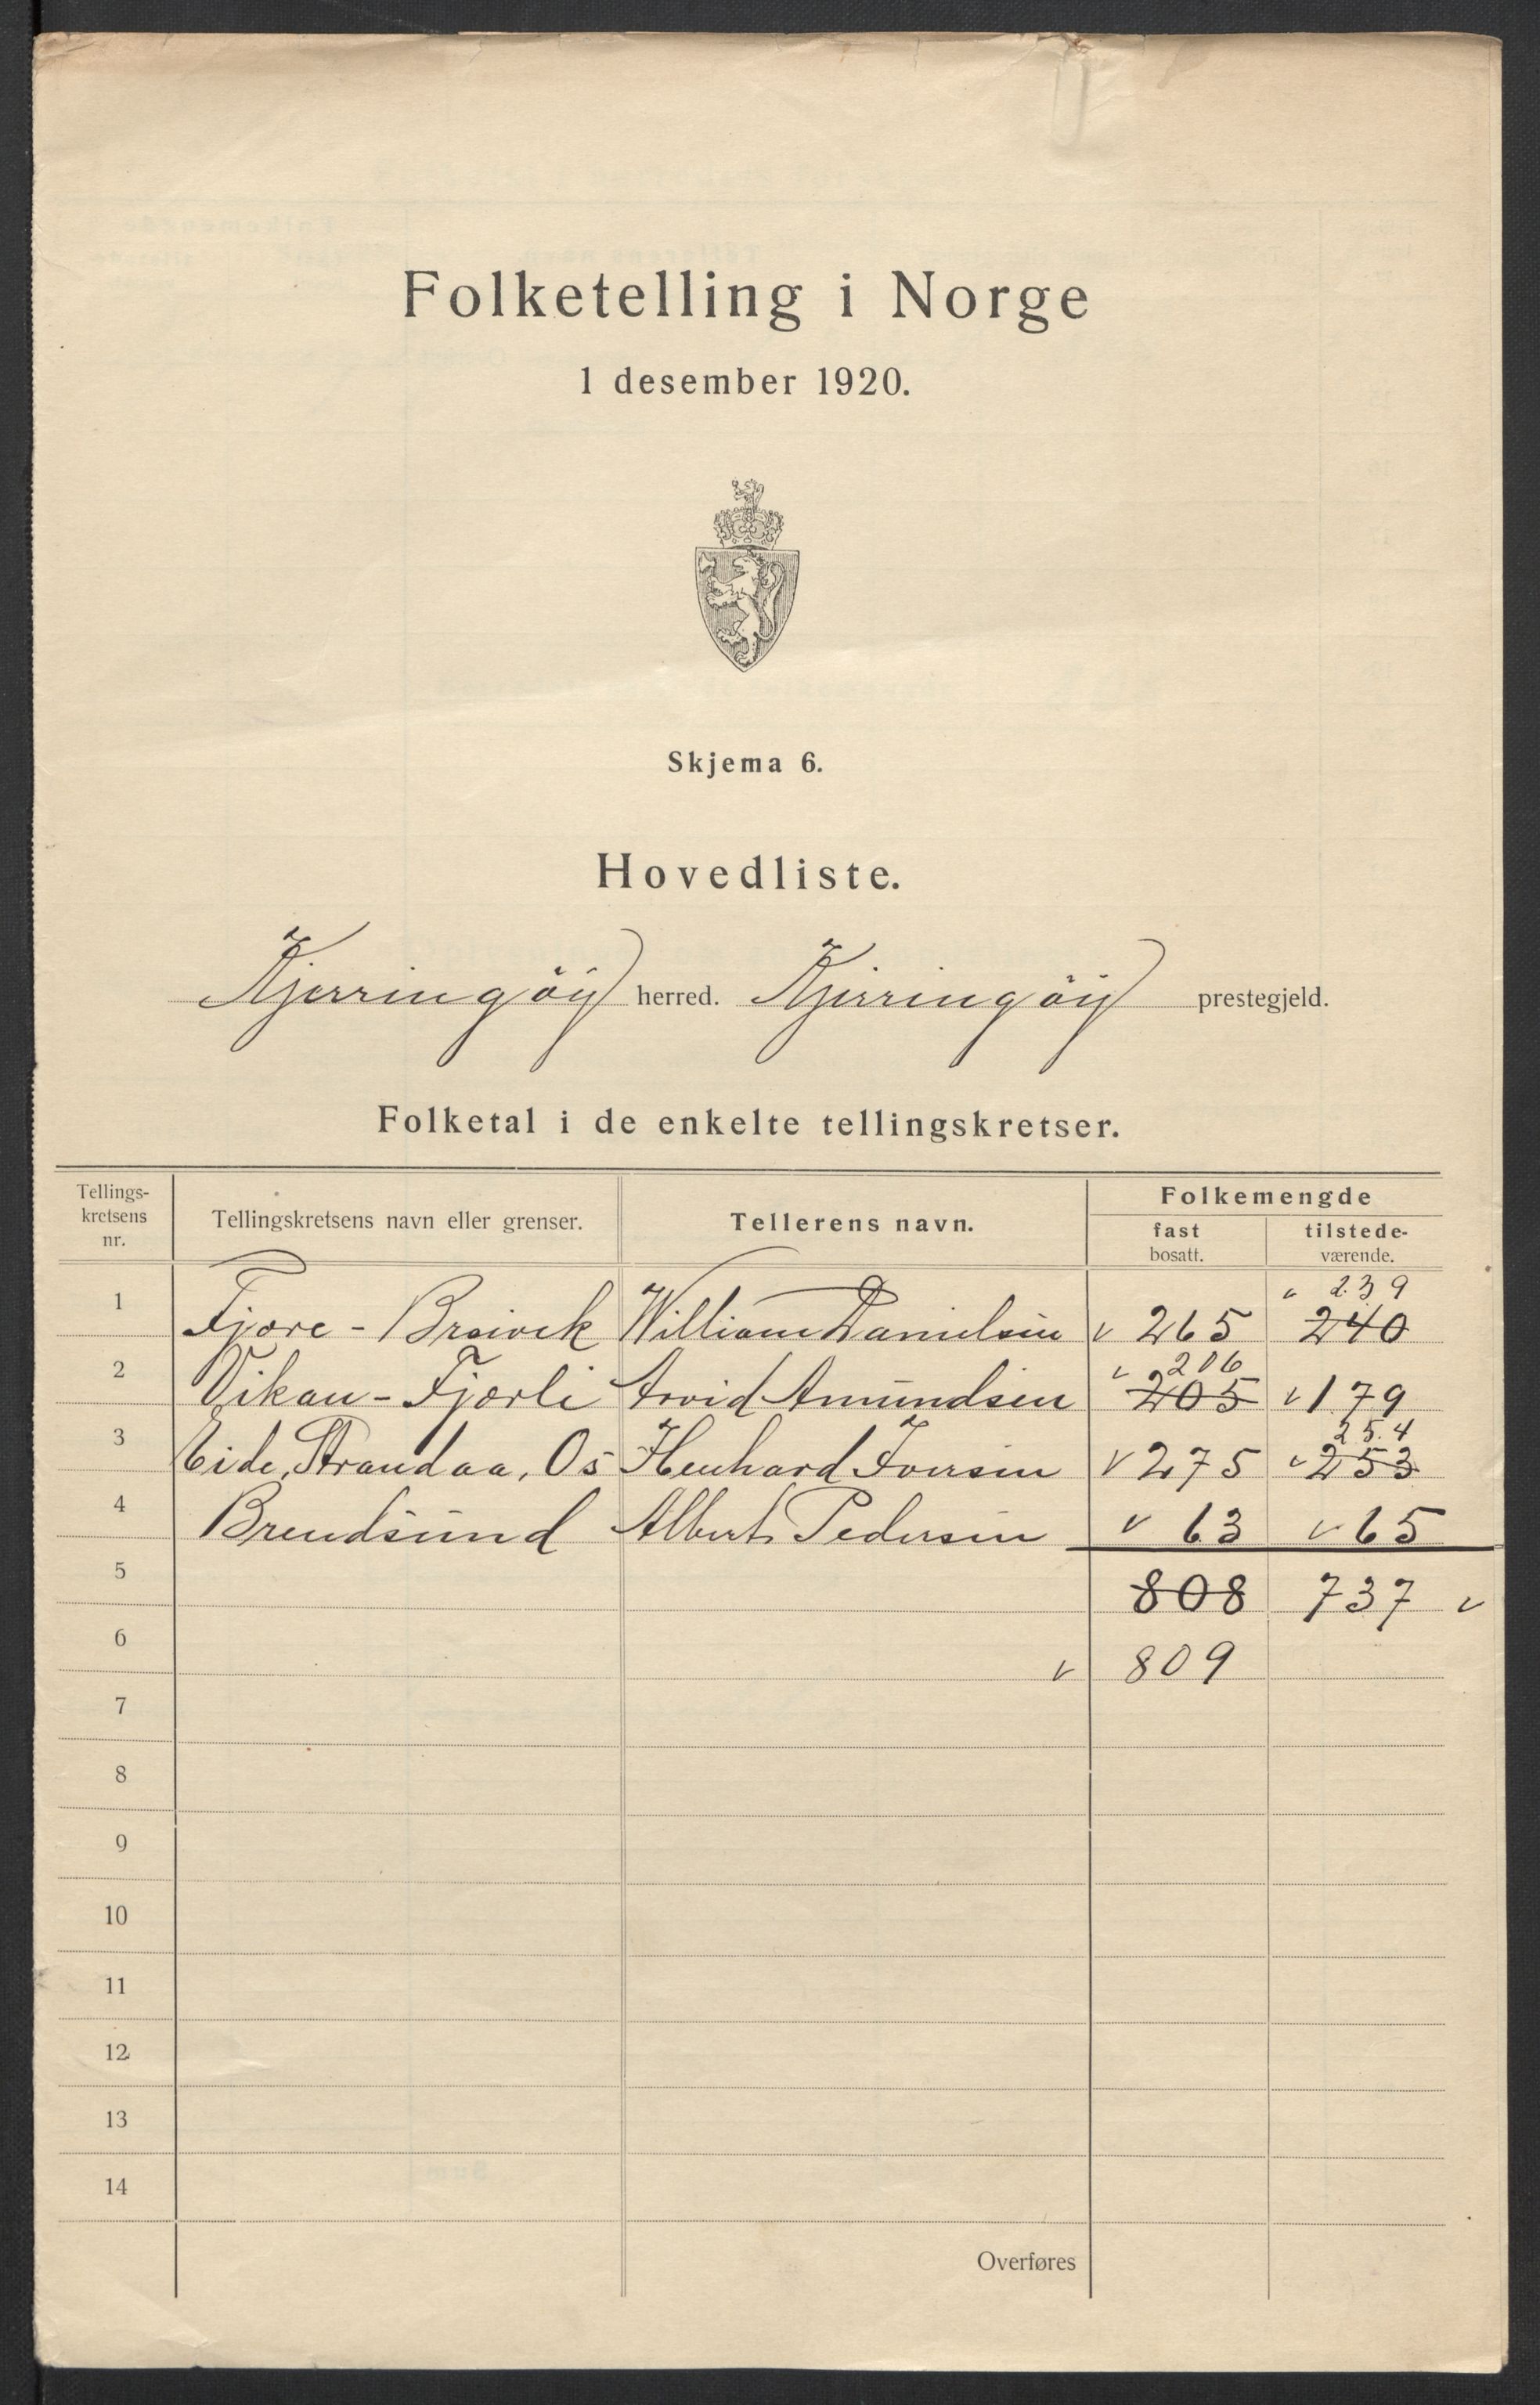 Folketelling i Norge
1 desember 1920.
Skjema 6.
Hovedliste.
Kjerringöy herred. Kjerringöy prestegjeld.
Folketal i de enkelte tellingskretser.
Tellings-
kretsens
nr.
Tellingskretsens navn eller grenser.
Tellerens navn.
Folkemengde
fast
bosatt.
tilstede-
værende.
v 239
1 Fjære - Breivik William Danielsen v 265 240
v 206
2 Vikan - Fjærli Arvid Amundsen 205 v 179
25.4
3 Eide, Strandaa, Os Henhard Iversen v 275 v 253
4 Brendsund Albert Pedersen v 63 v 65
5 808 737 v
6 v 809
7
8
9
10
11
12
13
14
Overføres